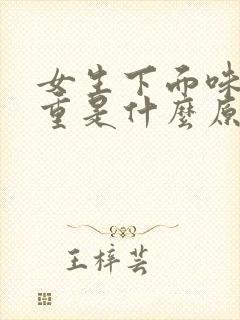 女生下面味
重是什麼原
王梓芸